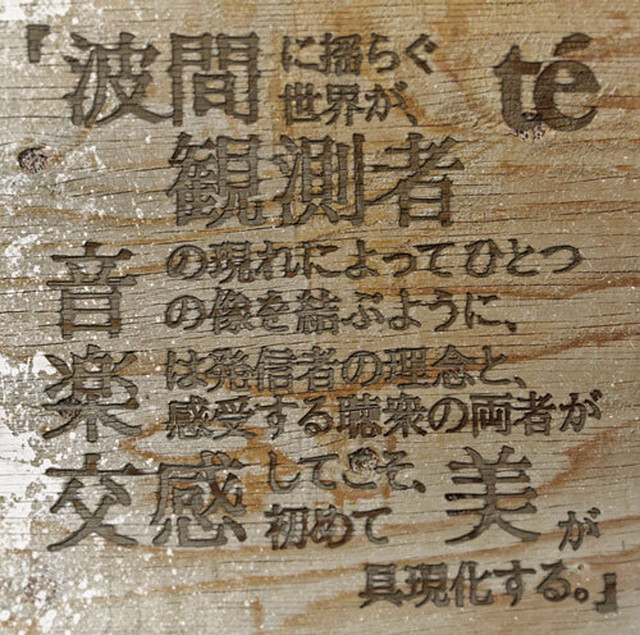 『波間に揺らぐ
世界が、
té
観測者
の現れによってひとつ
の像を結ぶように、
音楽は発信者の理念と、
感受する聴衆の両者が
交感してこそ、
初めて美が
具現化する。』